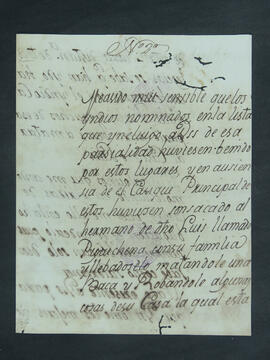 Nº 2º
Me asido mui sensible que los
Yndios nominados en la lista
que yncluigo a
parsialidad huviesen benido
por estos lugares, y en ausien
sia de el Casique Principal de
estos huviesen sonsacado al
hermano de dho Luis llamado
con su familia
y llebadoselo, matandole una
Baca y Robandole algunas
cosas de su Casa la qual esta